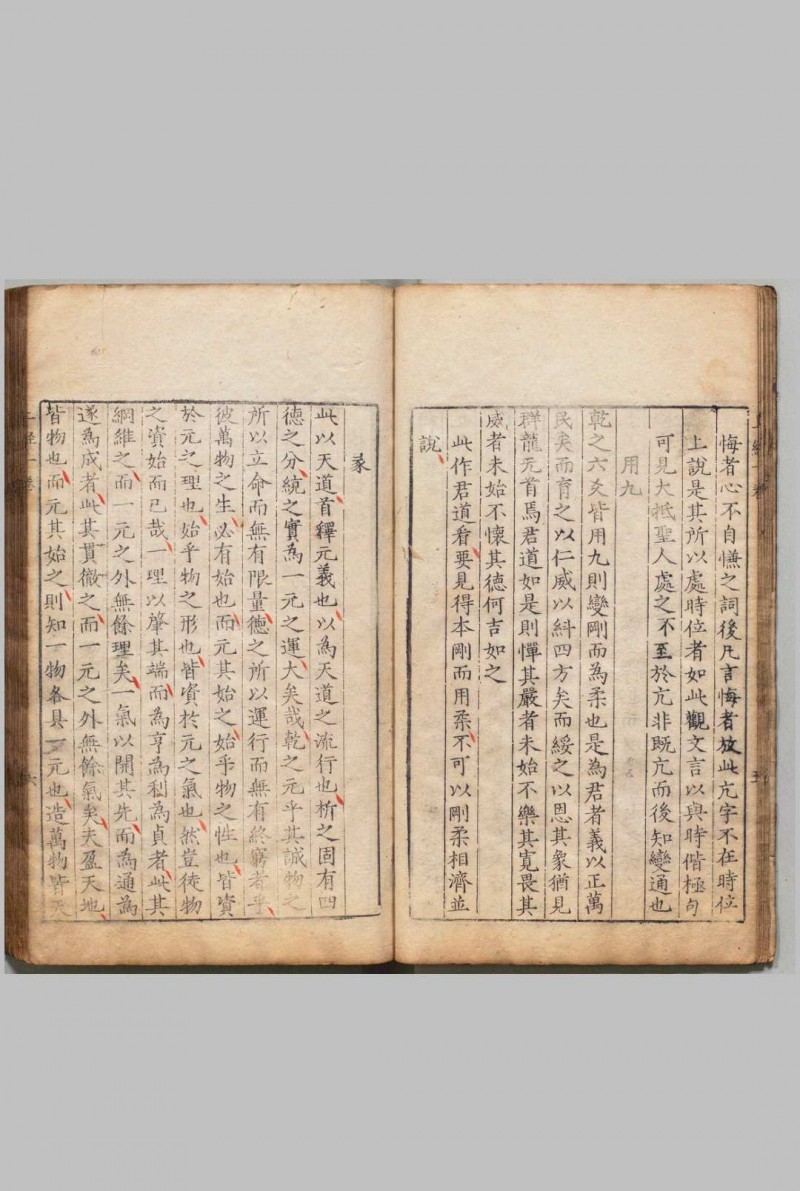 悔者心不自慊之詞後凡言悔者放此亢字不在時位
上說是其所以處時位者如此觀文言以與時偕極句
可見大抵聖人處之不至於亢非既亢而後知變通也
用九
乾之六爻皆用九則變剛而為柔也是為君者義以正萬
民矣而育之以仁威以糾四方矣而綏之以恩其象猶見
群龍元首焉君道如是則憚其嚴者未始不樂其寬畏其
威者未始不懷其德何吉如之
此作君道看要見得本剛而用柔不可以剛柔相濟並
說
彖
此以天道首釋元義也以為天道之流行也析之固有四
德之分統之實為一元之運大矣哉乾之元乎其誠物之
所以立命而無有限量德之所以運行而無有終窮者乎
彼萬物之生必有始也而元其始之始乎物之性也皆資
於元之理也始乎物之形也皆資於元之氣也然豈徒物
之資始而已哉一理以肇其端而為亨為利為貞者此其
綱維之而一元之外無餘理矣一氣以開其先而為通為
遂為成者此其貫徹之而一元之外無餘氣矣夫盈天地
皆物也而元其始之則知一物各具一元也造萬物皆天